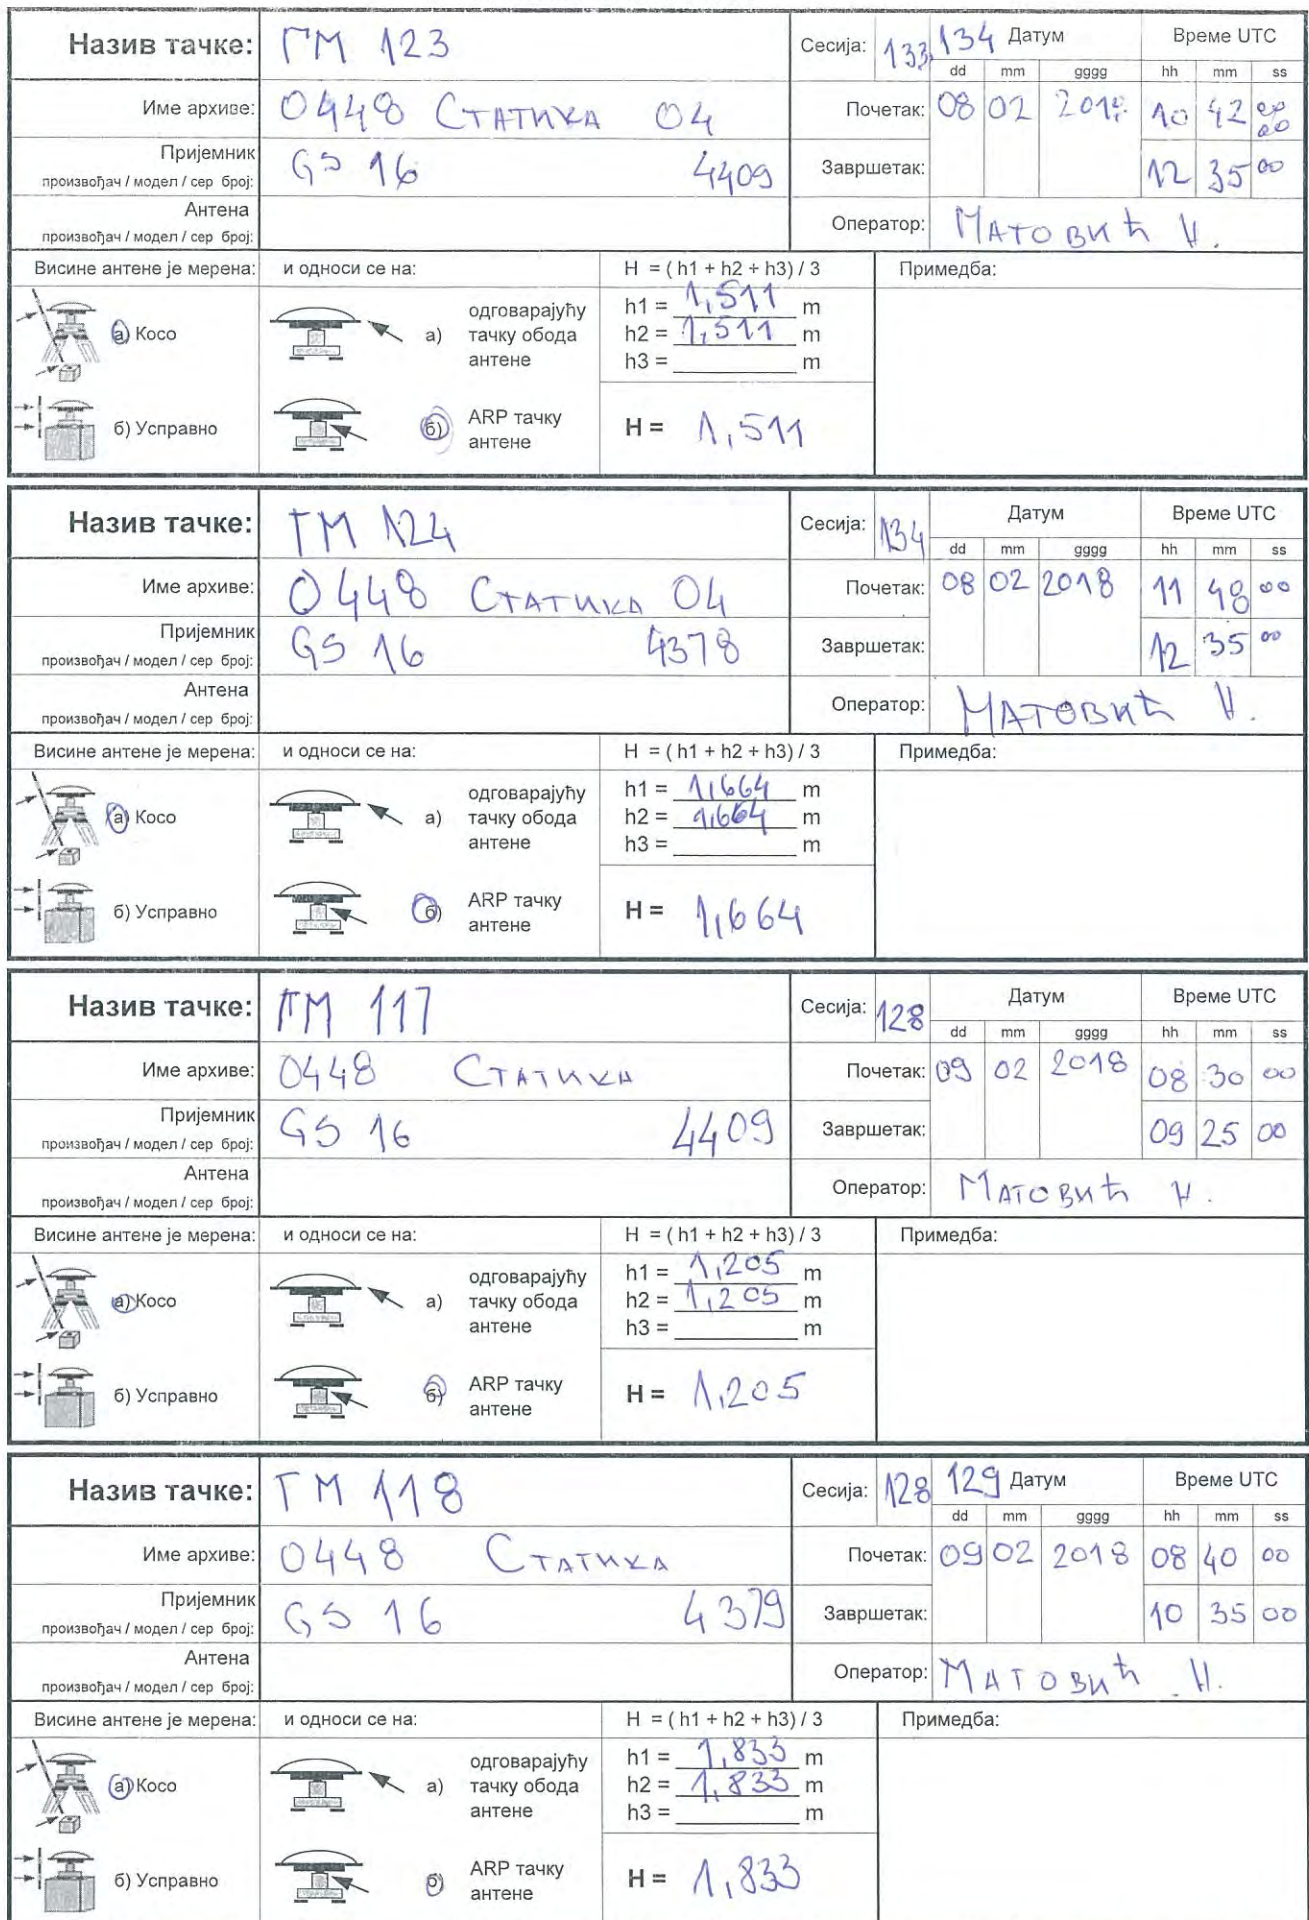 Назив тачке: ГМ 123 Сесија: 133, 134 Датум Време UTC
dd mm gggg hh mm ss
Име архиве: 0448 Статика 04 Почетак: 08 02 2018 10 42 00
Пријемник
произвођач / модел / сер број: GS 16 4409 Завршетак: 12 35 00
Антена
произвођач / модел / сер број: Оператор: Матовић Н.
Висине антене је мерена: и односи се на: H = ( h1 + h2 + h3) / 3 Примедба:
h1 = 1,511 m
а) Косо а) одговарајућу тачку обода антене h2 = 1,511 m
h3 = m
б) Усправно б) ARP тачку антене H = 1,511
Назив тачке: ГМ 124 Сесија: 134 Датум Време UTC
dd mm gggg hh mm ss
Име архиве: 0448 Статика 04 Почетак: 08 02 2018 11 48 00
Пријемник
произвођач / модел / сер број: GS 16 4378 Завршетак: 12 35 00
Антена
произвођач / модел / сер број: Оператор: Матовић Н.
Висине антене је мерена: и односи се на: H = ( h1 + h2 + h3) / 3 Примедба:
h1 = 1,664 m
а) Косо а) одговарајућу тачку обода антене h2 = 1,664 m
h3 = m
б) Усправно б) ARP тачку антене H = 1,664
Назив тачке: ГМ 117 Сесија: 128 Датум Време UTC
dd mm gggg hh mm ss
Име архиве: 0448 Статика Почетак: 09 02 2018 08 30 00
Пријемник
произвођач / модел / сер број: GS 16 4409 Завршетак: 09 25 00
Антена
произвођач / модел / сер број: Оператор: Матовић Н.
Висине антене је мерена: и односи се на: H = ( h1 + h2 + h3) / 3 Примедба:
h1 = 1,205 m
а) Косо а) одговарајућу тачку обода антене h2 = 1,205 m
h3 = m
б) Усправно б) ARP тачку антене H = 1,205
Назив тачке: ГМ 118 Сесија: 128 129 Датум Време UTC
dd mm gggg hh mm ss
Име архиве: 0448 Статика Почетак: 09 02 2018 08 40 00
Пријемник
произвођач / модел / сер број: GS 16 4379 Завршетак: 10 35 00
Антена
произвођач / модел / сер број: Оператор: Матовић Н.
Висине антене је мерена: и односи се на: H = ( h1 + h2 + h3) / 3 Примедба:
h1 = 1,833 m
а) Косо а) одговарајућу тачку обода антене h2 = 1,833 m
h3 = m
б) Усправно б) ARP тачку антене H = 1,833